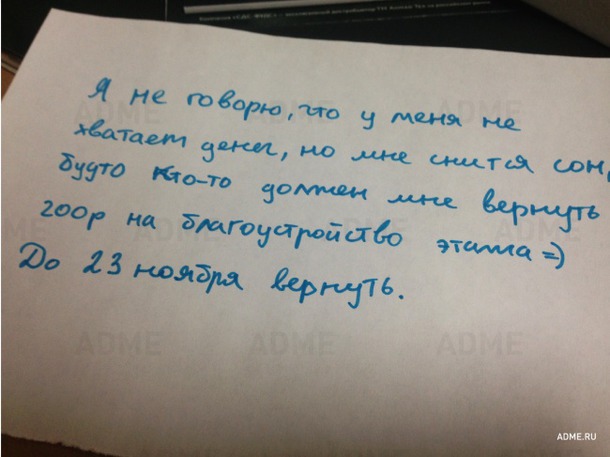 Я не говорю, что у меня не
хватает денег, но мне снится сон,
будто кто-то должен мне вернуть
200р на благоустройство этажа =)
До 23 ноября вернуть.
ADME
ADME
ADME
ADME
ADME
ADME
ADME.RU